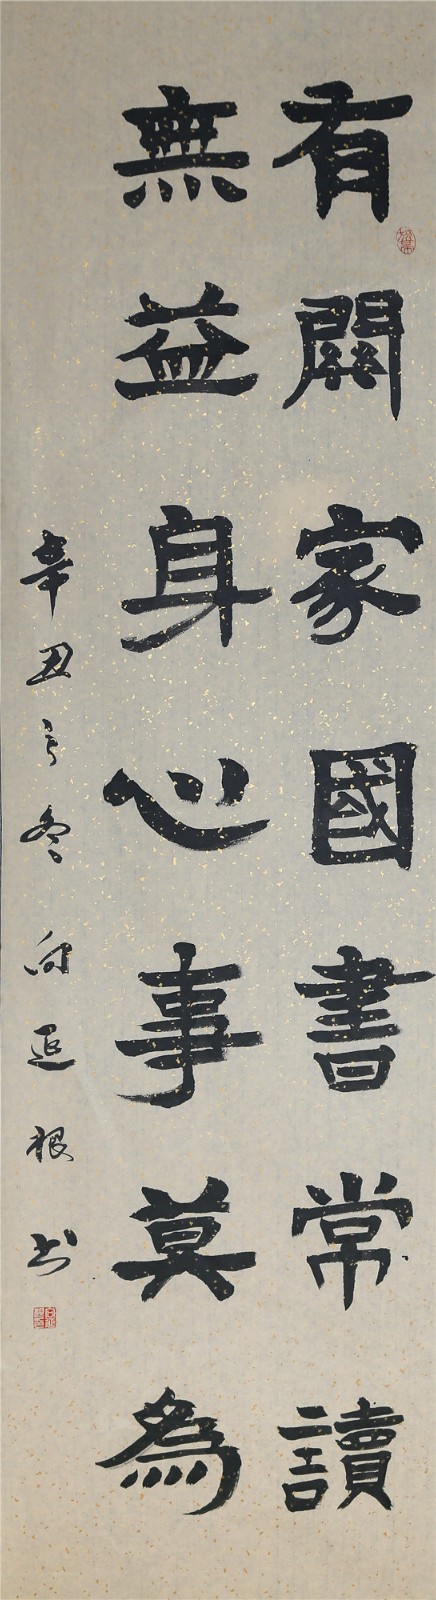 有關家國書常讀
無益身心事莫為
辛丑之冬向延根书